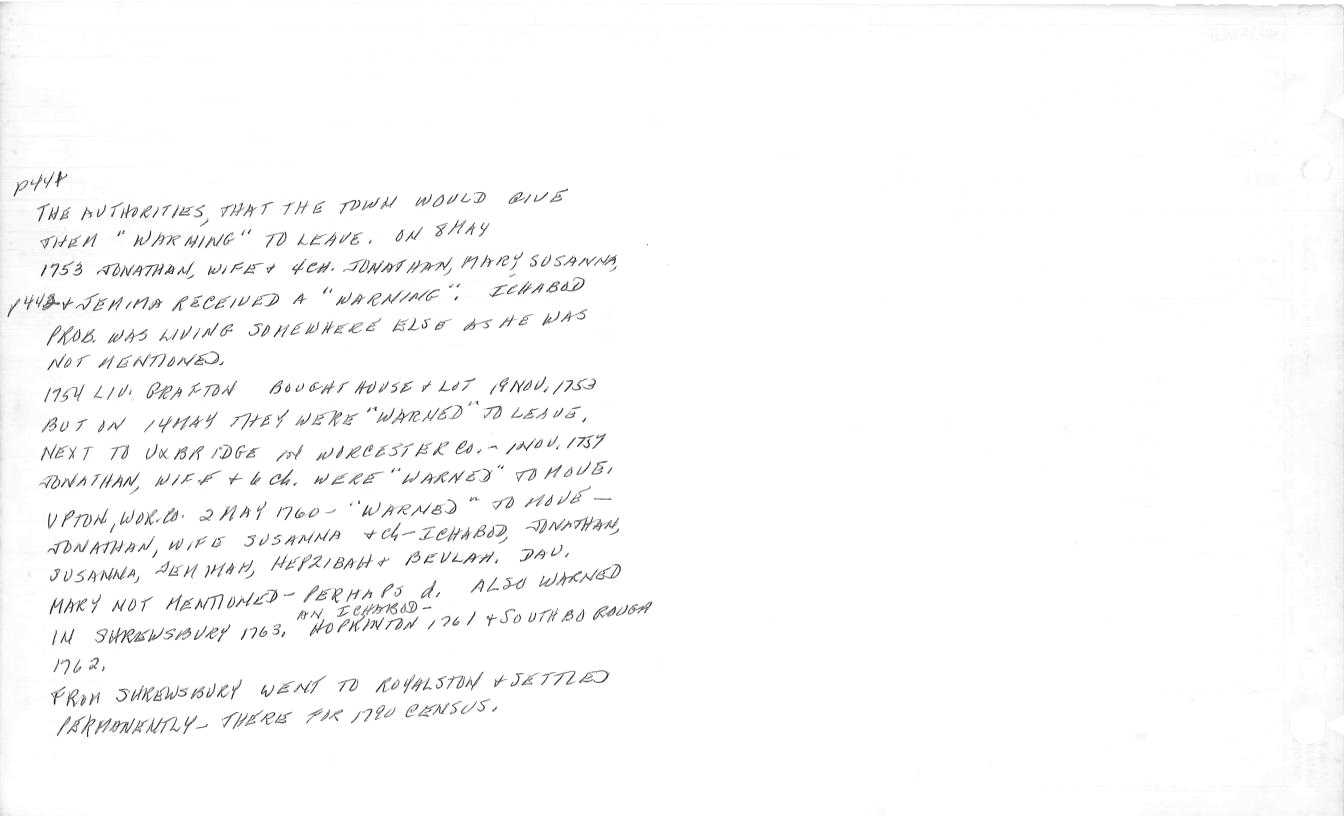 p441
THE AUTHORITIES, THAT THE TOWN WOULD GIVE
THEM "WARNING" TO LEAVE. ON 8 MAY
1753 JONATHAN, WIFE + 4 CH. JONATHAN, MARY, SUSANNA,
p442 + JEMIMA RECEIVED A "WARNING". ICHABOD
PROB. WAS LIVING SOMEWHERE ELSE AS HE WAS
NOT MENTIONED.
1754 LIV. GRAFTON BOUGHT HOUSE + LOT 19 NOV. 1753
BUT ON 14 MAY THEY WERE "WARNED" TO LEAVE,
NEXT TO UXBRIDGE IN WORCESTER CO. - 1 NOV. 1757
JONATHAN, WIFE + 6 Ch. WERE "WARNED" TO MOVE.
UPTON, WOR. CO. 2 MAY 1760 - "WARNED" TO MOVE —
JONATHAN, WIFE SUSANNA + Ch - ICHABOD, JONATHAN,
SUSANNA, JEMIMAH, HEPZIBAH + BEULAH. DAU.
MARY NOT MENTIONED - PERHAPS d. ALSO WARNED
AN ICHABOD -
IN SHREWSBURY 1763, HOPKINTON 1761 + SOUTHBOROUGH
1762.
FROM SHREWSBURY WENT TO ROYALSTON + SETTLED
PERMANENTLY - THERE FOR 1790 CENSUS.